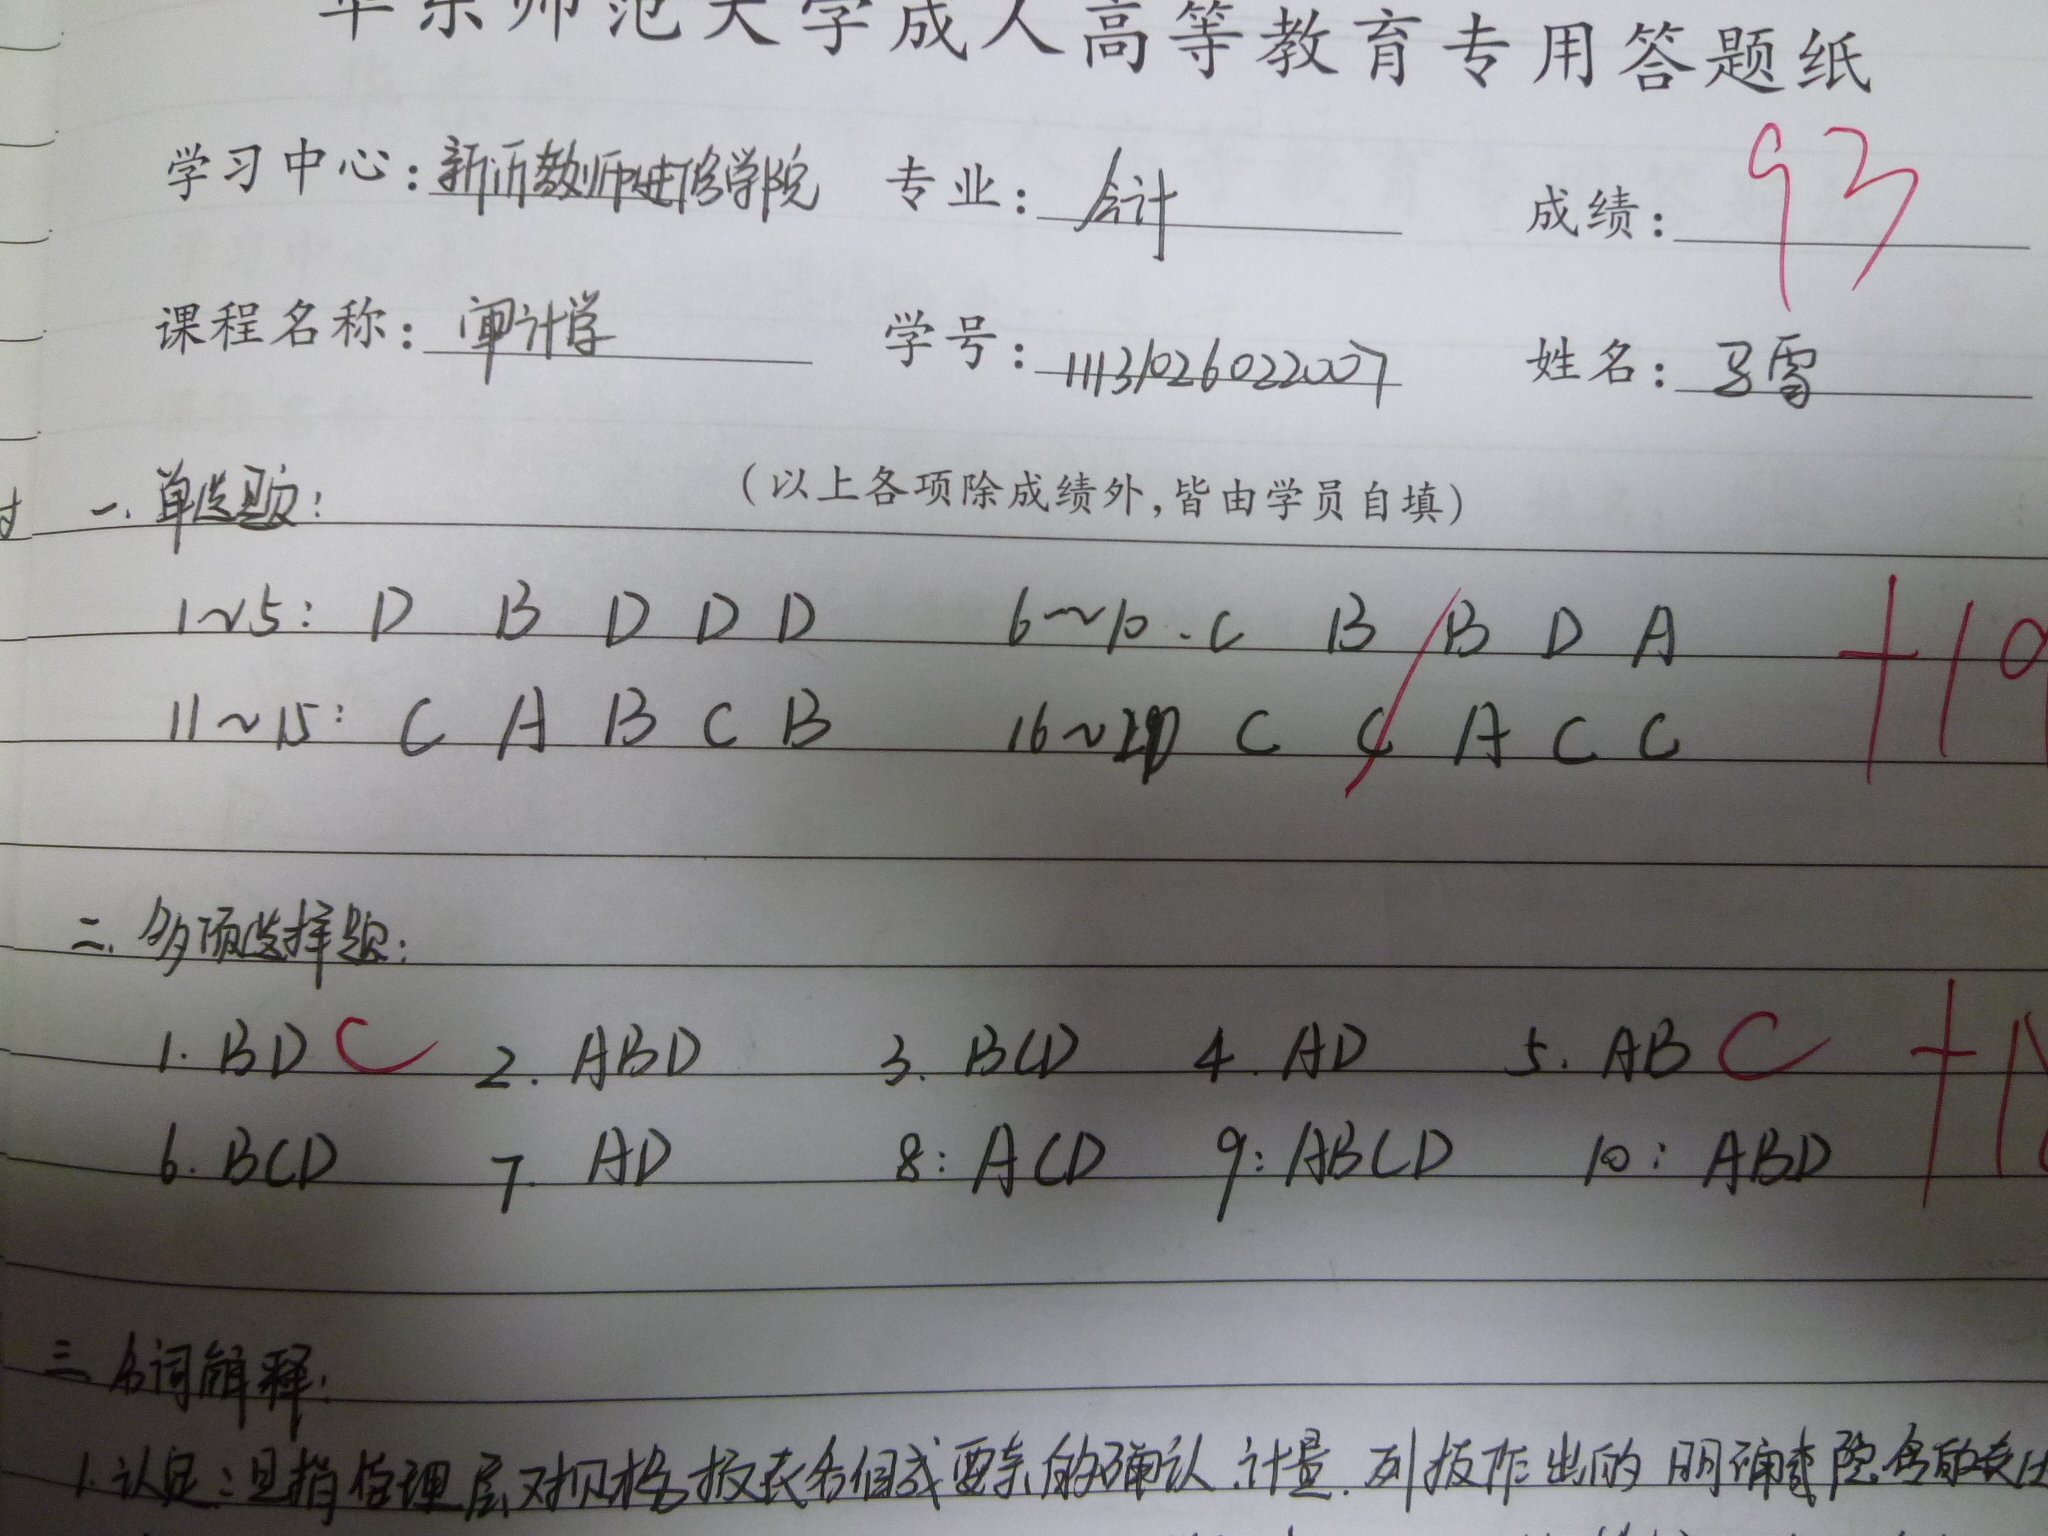 华东师范大学成人高等教育专用答题纸
学习中心：新沂教师进修学院 专业：会计 成绩：93
课程名称：审计学 学号：11131026022007 姓名：马雪
(以上各项除成绩外,皆由学员自填)
一.单选题：
1~5： D B D D D 6~10. C B B D A +19
11~15： C A B C B 16~20 C C A C C
二.多项选择题：
1. BD C 2. ABD 3. BCD 4. AD 5. AB C
6. BCD 7. AD 8: ACD 9: ABCD 10: ABD
三.名词解释：
1.认定：是指管理层对财务报表各组成要素的确认.计量.列报作出的明确或隐含的表达